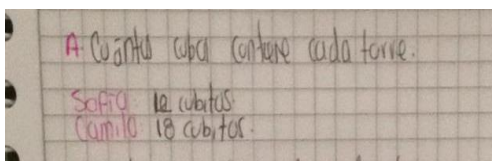 A. Cuántus cubos contiene cada torre.
Sofia 12 cubitos
Camilo 18 cubitos.